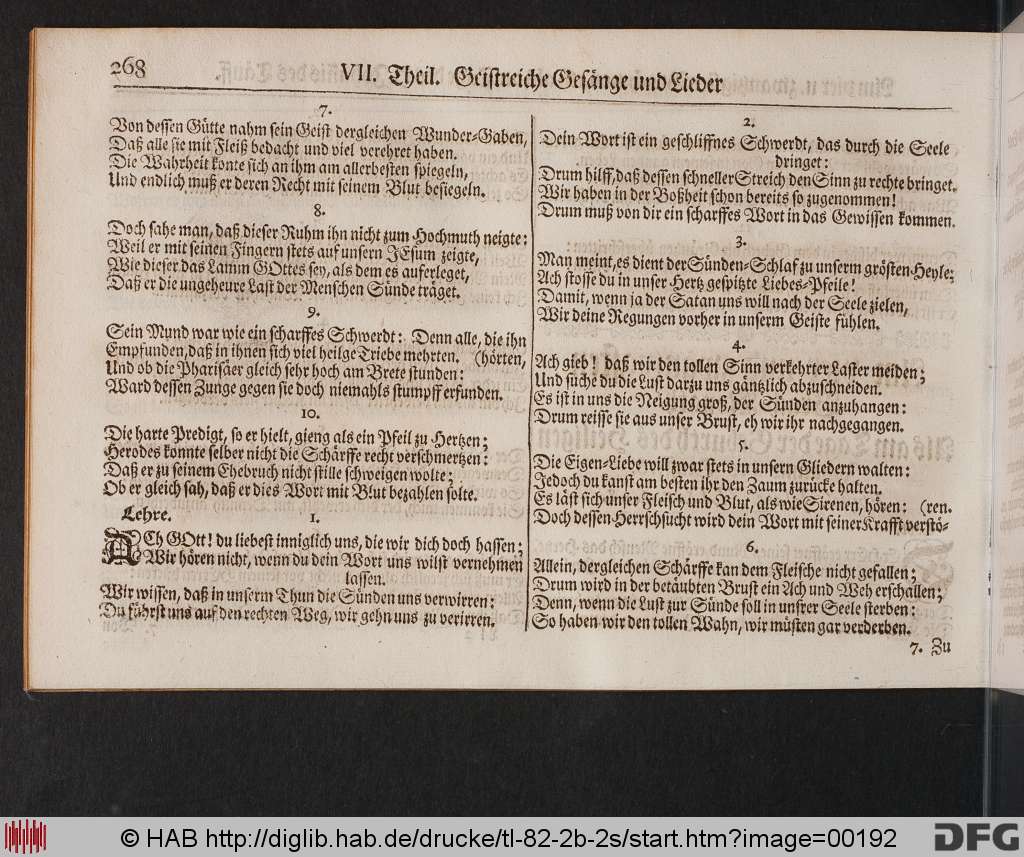 268
VII. Theil. Geistreiche Gesänge und Lieder
7.
Von dessen Gütte nahm sein Geist dergleichen Wunder-Gaben,
Daß alle sie mit Fleiß bedacht und viel verehret haben.
Die Wahrheit konte sich an ihm am allerbesten spiegeln,
Und endlich muß er deren Recht mit seinem Blut besiegeln.
8.
Doch sahe man, daß dieser Ruhm ihn nicht zum Hochmuth neigte:
Weil er mit seinen Fingern stets auf unsern JEsum zeigte,
Wie dieser das Lamm GOttes sey, als dem es auferleget,
Daß er die ungeheure Last der Menschen Sünde träget.
9.
Sein Mund war wie ein scharffes Schwerdt: Denn alle, die ihn
Empfunden, daß in ihnen sich viel heilge Triebe mehrten. (hörten,
Und ob die Pharisäer gleich sehr hoch am Brete stunden:
Ward dessen Zunge gegen sie doch niemahls stumpff erfunden.
10.
Die harte Predigt, so er hielt, gieng als ein Pfeil zu Hertzen;
Herodes konnte selber nicht die Schärffe recht verschmertzen:
Daß er zu seinem Ehebruch nicht stille schweigen wolte;
Ob er gleich sah, daß er dies Wort mit Blut bezahlen solte.
Lehre. 1.
ACh GOtt! du liebest inniglich uns, die wir dich doch hassen;
Wir hören nicht, wenn du dein Wort uns wilst vernehmen
lassen.
Wir wissen, daß in unserm Thun die Sünden uns verwirren:
Du führst uns auf den rechten Weg, wir gehn uns zu verirren.
2.
Dein Wort ist ein geschliffnes Schwerdt, das durch die Seele
dringet:
Drum hilff, daß dessen schneller Streich den Sinn zu rechte bringet.
Wir haben in der Boßheit schon bereits so zugenommen!
Drum muß von dir ein scharffes Wort in das Gewissen kommen.
3.
Man meint, es dient der Sünden-Schlaf zu unserm grösten Heyle;
Ach stosse du in unser Hertz gespitzte Liebes-Pfeile!
Damit, wenn ja der Satan uns will nach der Seele zielen,
Wir deine Regungen vorher in unserm Geiste fühlen.
4.
Ach gieb! daß wir den tollen Sinn verkehrter Laster meiden;
Und suche du die Lust darzu uns gäntzlich abzuschneiden.
Es ist in uns die Neigung groß, der Sünden anzuhangen:
Drum reisse sie aus unser Brust, eh wir ihr nachgegangen.
5.
Die Eigen-Liebe will zwar stets in unsern Gliedern walten:
Jedoch du kanst am besten ihr den Zaum zurücke halten.
Es läst sich unser Fleisch und Blut, als wie Sirenen, hören: (ren.
Doch dessen Herrschsucht wird dein Wort mit seiner Krafft verstö-
6.
Allein, dergleichen Schärffe kan dem Fleische nicht gefallen;
Drum wird in der betäubten Brust ein Ach und Weh erschallen;
Denn, wenn die Lust zur Sünde soll in unsrer Seele sterben:
So haben wir den tollen Wahn, wir müsten gar verderben.
7. Zu
© HAB http://diglib.hab.de/drucke/tl-82-2b-2s/start.htm?image=00192
DFG